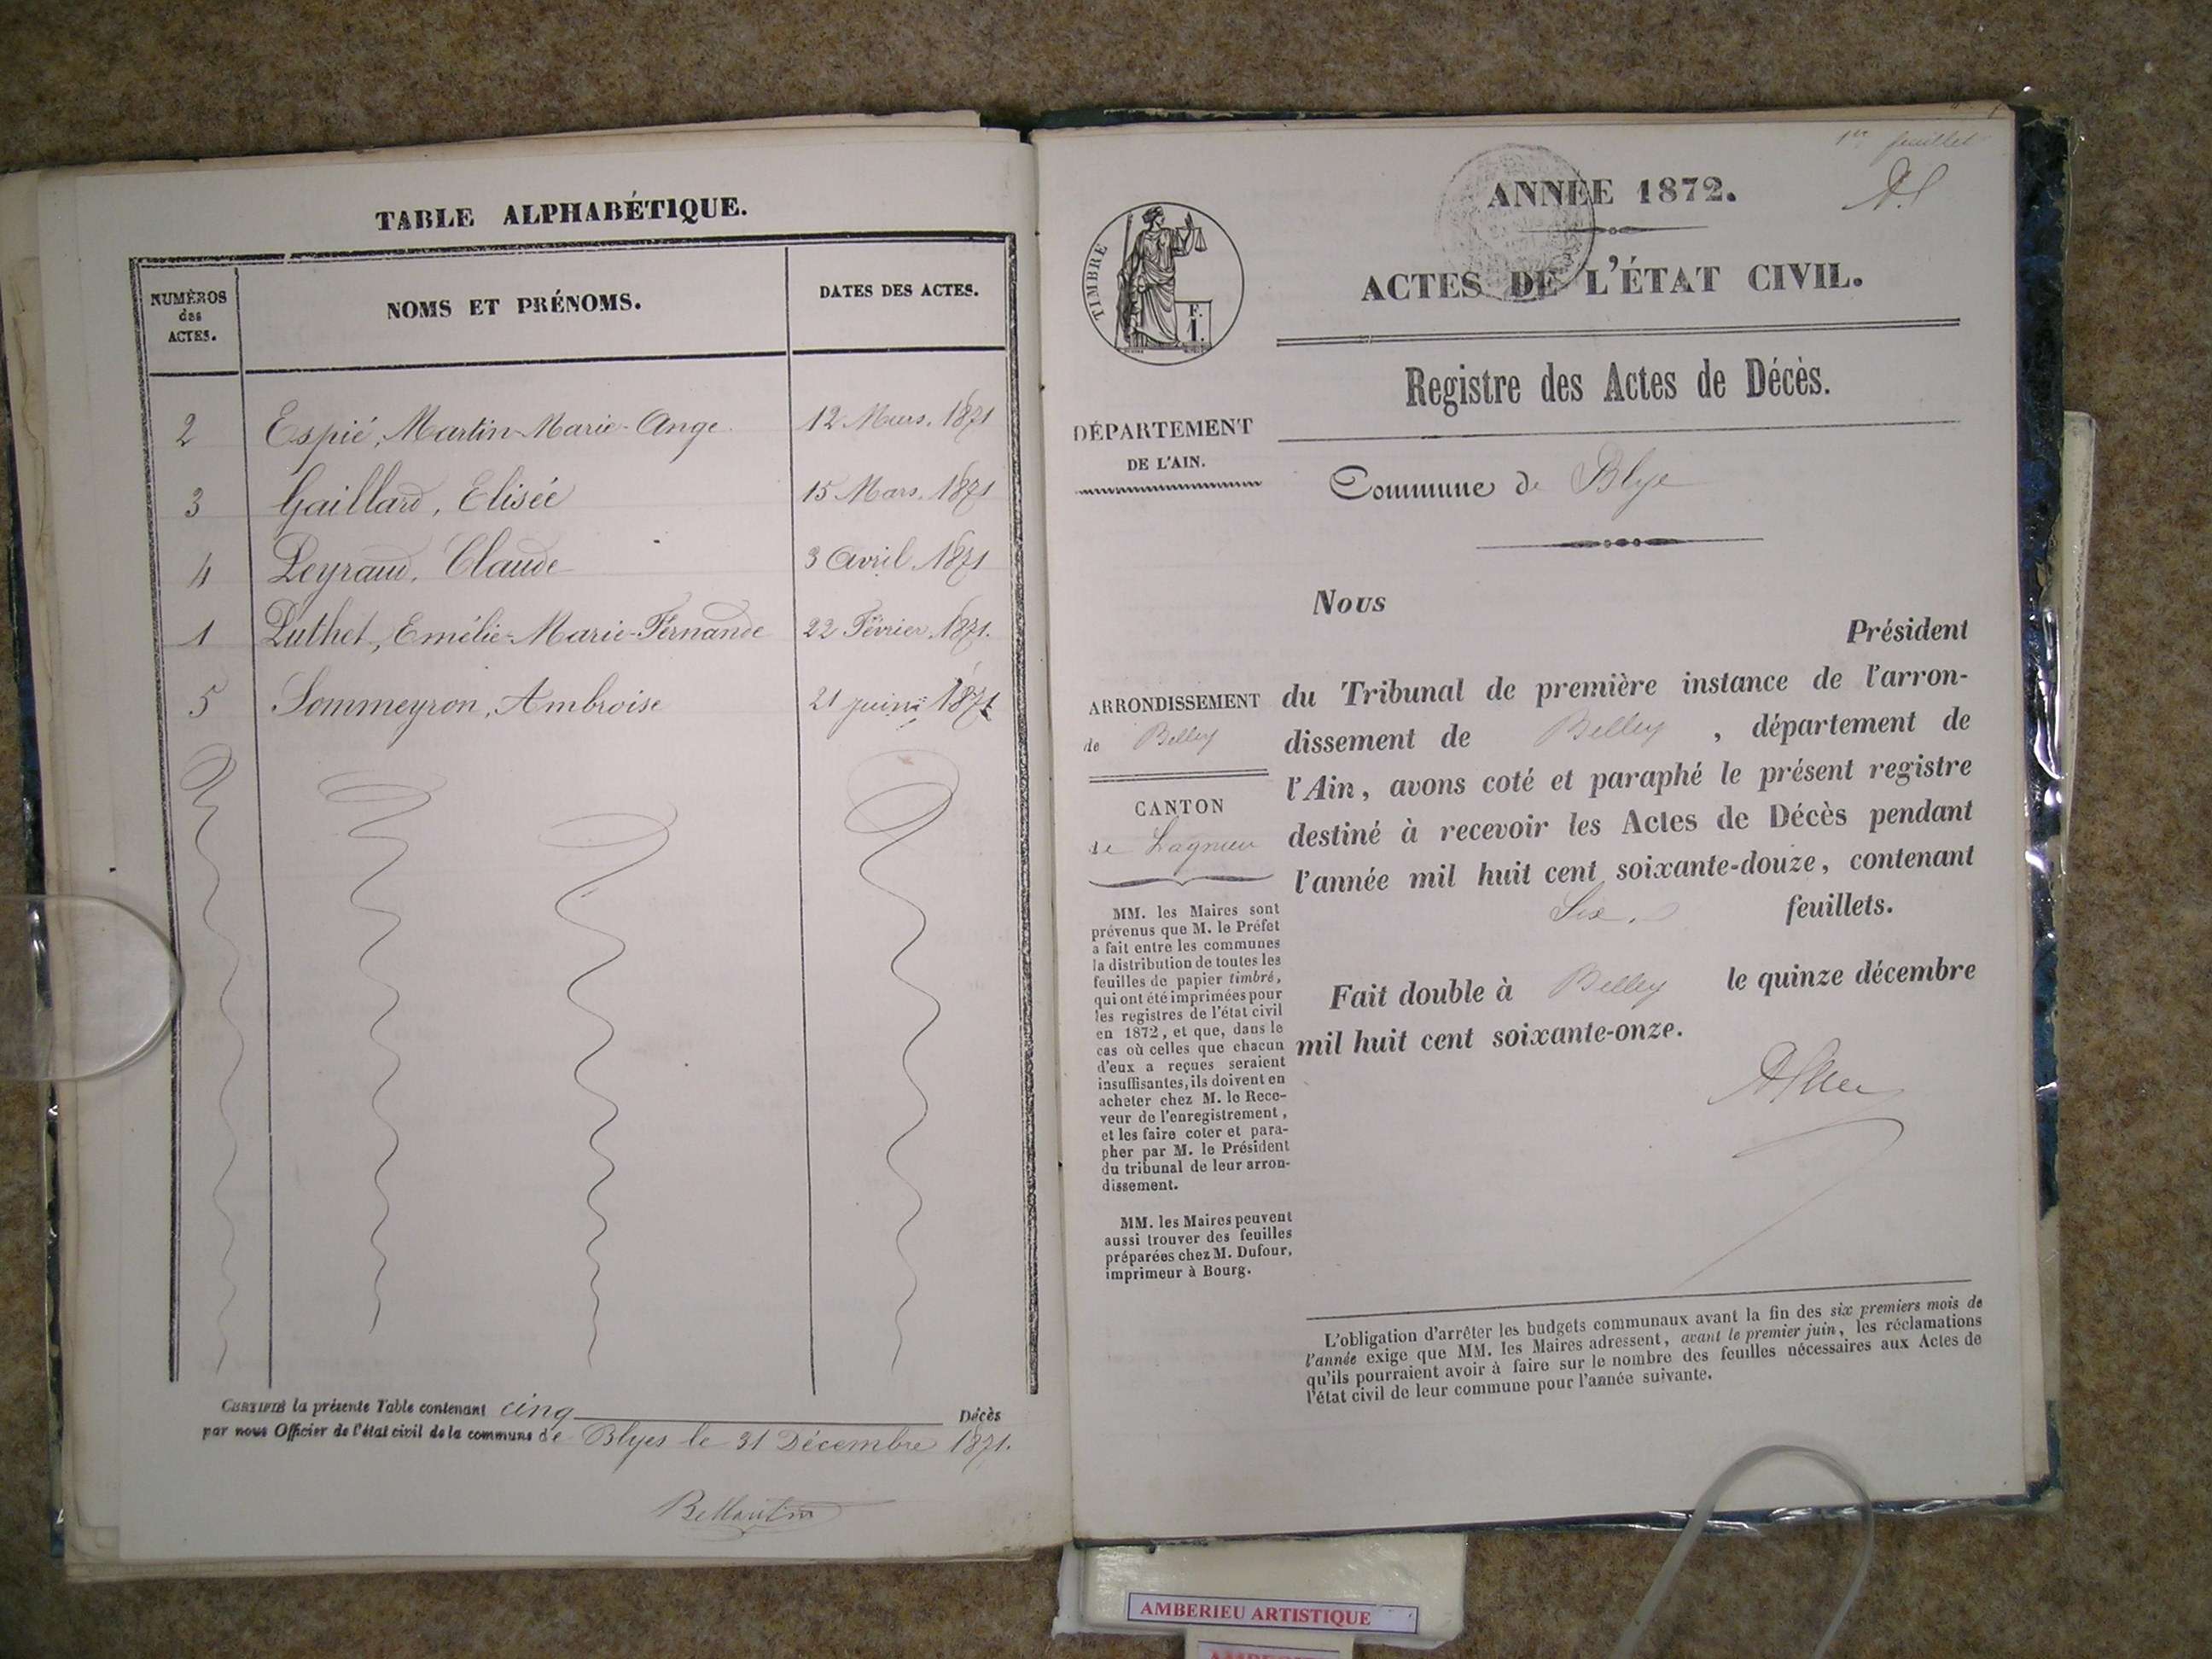 TABLE ALPHABÉTIQUE.
NUMÉROS
des
ACTES.
NOMS ET PRÉNOMS.
DATES DES ACTES.
2 Espié, Martin-Marie-Ange. 12 Mars. 1871
3 Gaillard, Elisée 15 Mars. 1871
4 Peyraud, Claude 3 Avril 1871
1 Puthet, Emélie-Marie-Fernande 22 Février 1871.
5 Sommeyron, Ambroise 21 juin 1871
CERTIFIÉ la présente Table contenant cinq Décès
par nous Officier de l'état civil de la commune de Blyes le 31 Décembre 1871.
1er feuillet
ANNÉE 1872.
TIMBRE
F.
1.
ACTES DE L'ÉTAT CIVIL.
Registre des Actes de Décès.
DÉPARTEMENT
DE L'AIN.
Commune de Blye
Nous
Président
ARRONDISSEMENT
de Belley
CANTON
de Lagnieu
du Tribunal de première instance de l'arron-
dissement de Belley, département de
l'Ain, avons coté et paraphé le présent registre
destiné à recevoir les Actes de Décès pendant
l'année mil huit cent soixante-douze, contenant
Six. feuillets.
Fait double à Belley le quinze décembre
mil huit cent soixante-onze.
MM. les Maires sont
prévenus que M. le Préfet
a fait entre les communes
la distribution de toutes les
feuilles de papier timbré,
qui ont été imprimées pour
les registres de l'état civil
en 1872, et que, dans le
cas où celles que chacun
d'eux a reçues seraient
insuffisantes, ils doivent en
acheter chez M. le Rece-
veur de l'enregistrement,
et les faire coter et para-
pher par M. le Président
du tribunal de leur arron-
dissement.
MM. les Maires peuvent
aussi trouver des feuilles
préparées chez M. Dufour,
imprimeur à Bourg.
L'obligation d'arrêter les budgets communaux avant la fin des six premiers mois de
l'année exige que MM. les Maires adressent, avant le premier juin, les réclamations
qu'ils pourraient avoir à faire sur le nombre des feuilles nécessaires aux Actes de
l'état civil de leur commune pour l'année suivante.
AMBERIEU ARTISTIQUE